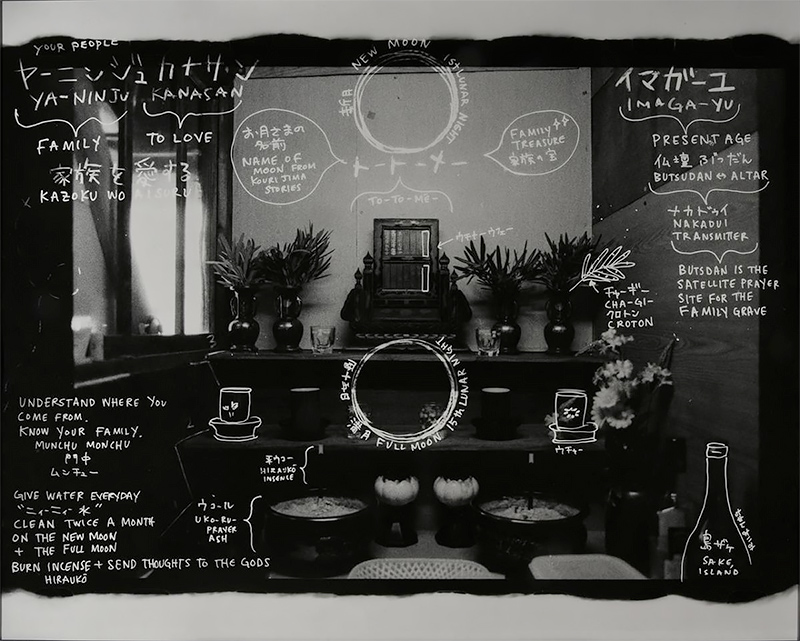 YOUR PEOPLE
ヤーニンジュ カナサン
YA-NINJU KANASAN
FAMILY
TO LOVE
家族を愛する
KAZOKU WO AISURU
NEW MOON 1st LUNAR NIGHT
お月さまの
名前
NAME OF
MOON FROM
KOURI JIMA
STORIES
トートーメー
TO-TO-ME-
FAMILY
TREASURE
家族の宝
イマガーユ
IMAGA-YU
PRESENT AGE
仏壇 ぶつだん
BUTSUDAN ↔ ALTAR
ナカドゥイ
NAKADUI
TRANSMITTER
BUTSDAN IS THE
SATELLITE PRAYER
SITE FOR THE
FAMILY GRAVE
チャーギー
CHA-GI-
クロトン
CROTON
満月 FULL MOON 15th LUNAR NIGHT
UNDERSTAND WHERE YOU
COME FROM.
KNOW YOUR FAMILY.
MUNCHU MONCHU
門中
ムンチュー
GIVE WATER EVERYDAY
CLEAN TWICE A MONTH
ON THE NEW MOON
+ THE FULL MOON
BURN INCENSE + SEND THOUGHTS TO THE GODS
HIRAUKŌ
平ウコー
HIRAUKŌ
INSENCE
ウコール
UKO-RU-
PRAYER
ASH
ウチャー
島ザケ
SAKE,
ISLAND